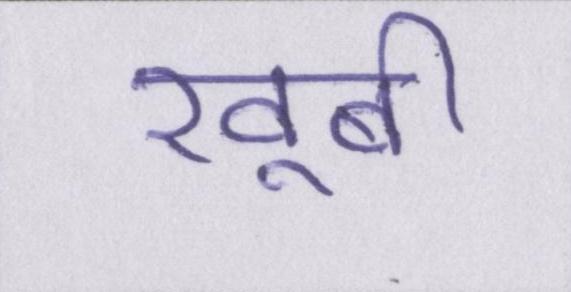 खूबी